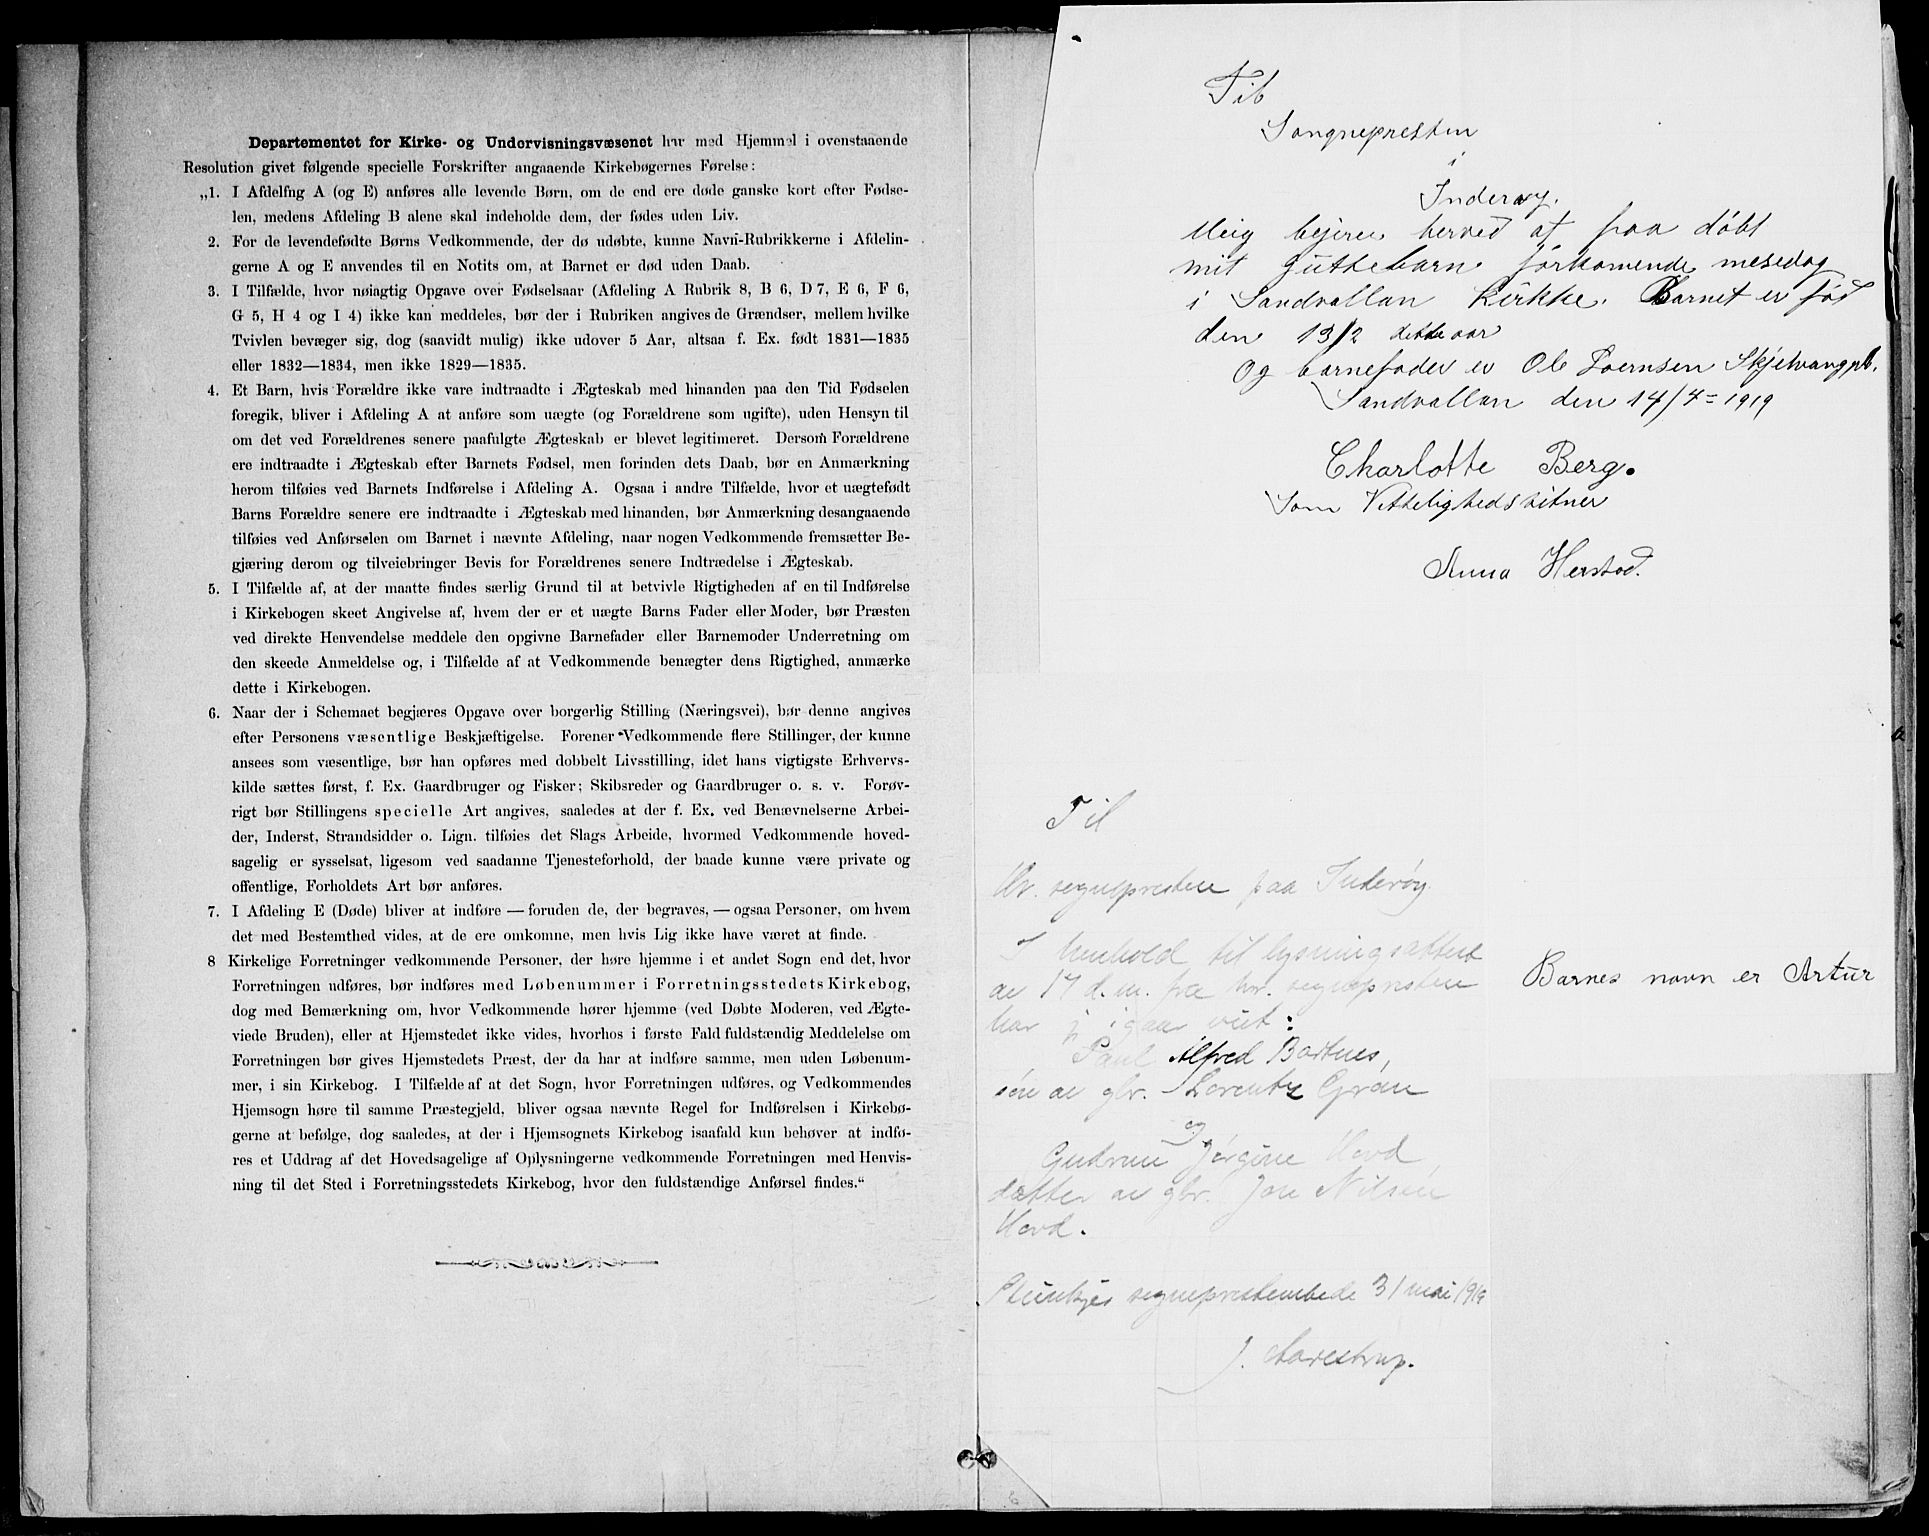 Departementet for Kirke- og Undervisningsvæsenet har med Hjemmel i ovenstaaende
Resolution givet følgende specielle Forskrifter angaaende Kirkebøgernes Førelse:
„1. I Afdelfng A (og E) anføres alle levende Børn, om de end ere døde ganske kort efter Fødse-
len, medens Afdeling B alene skal indeholde dem, der fødes uden Liv.
2. For de levendefødte Børns Vedkommende, der dø udøbte, kunne Navn-Rubrikkerne i Afdelin-
gerne A og E anvendes til en Notits om, at Barnet er død uden Daab.
3. I Tilfælde, hvor nøiagtig Opgave over Fødselsaar (Afdeling A Rubrik 8, B 6, D 7, E 6, F 6,
G 5, H 4 og I 4) ikke kan meddeles, bør der i Rubriken angives de Grændser, mellem hvilke
Tvivlen bevæger sig, dog (saavidt mulig) ikke udover 5 Aar, altsaa f. Ex. født 1831—1835
eller 1832—1834, men ikke 1829—1835.
4. Et Barn, hvis Forældre ikke vare indtraadte i Ægteskab med hinanden paa den Tid Fødselen
foregik, bliver i Afdeling A at anføre som uægte (og Forældrene som ugifte), uden Hensyn til
om det ved Forældrenes senere paafulgte Ægteskab er blevet legitimeret. Dersom Forældrene
ere indtraadte i Ægteskab efter Barnets Fødsel, men forinden dets Daab, bør en Anmærkning
herom tilføies ved Barnets Indførelse i Afdeling A. Ogsaa i andre Tilfælde, hvor et uægtefødt
Barns Forældre senere ere indtraadte i Ægteskab med hinanden, bør Anmærkning desangaaende
tilføies ved Anførselen om Barnet i nævnte Afdeling, naar nogen Vedkommende fremsætter Be-
gjæring derom og tilveiebringer Bevis for Forældrenes senere Indtrædelse i Ægteskab.
5. I Tilfælde af, at der maatte findes særlig Grund til at betvivle Rigtigheden af en til Indførelse
i Kirkebogen skeet Angivelse af, hvem der er et uægte Barns Fader eller Moder, bør Præsten
ved direkte Henvendelse meddele den opgivne Barnefader eller Barnemoder Underretning om
den skeede Anmeldelse og, i Tilfælde af at Vedkommende benægter dens Rigtighed, anmærke
dette i Kirkebogen.
6. Naar der i Schemaet begjæres Opgave over borgerlig Stilling (Næringsvei), bør denne angives
efter Personens væsentlige Beskjæftigelse. Forener Vedkommende flere Stillinger, der kunne
ansees som væsentlige, bør han opføres med dobbelt Livsstilling, idet hans vigtigste Erhvervs-
kilde sættes først, f. Ex. Gaardbruger og Fisker; Skibsreder og Gaardbruger o. s. v. Forøv-
rigt bør Stillingens specielle Art angives, saaledes at der f. Ex. ved Benævnelserne Arbei-
der, Inderst, Strandsidder o. Lign. tilføies det Slags Arbeide, hvormed Vedkommende hoved-
sagelig er sysselsat, ligesom ved saadanne Tjenesteforhold, der baade kunne være private og
offentlige, Forholdets Art bør anføres.
7. I Afdeling E (Døde) bliver at indføre — foruden de, der begraves, — ogsaa Personer, om hvem
det med Bestemthed vides, at de ere omkomne, men hvis Lig ikke have været at finde.
8 Kirkelige Forretninger vedkommende Personer, der høre hjemme i et andet Sogn end det, hvor
Forretningen udføres, bør indføres med Løbenummer i Forretningsstedets Kirkebog,
dog med Bemærkning om, hvor Vedkommende hører hjemme (ved Døbte Moderen, ved Ægte-
viede Bruden), eller at Hjemstedet ikke vides, hvorhos i første Fald fuldstændig Meddelelse om
Forretningen bør gives Hjemstedets Præst, der da har at indføre samme, men uden Løbenum-
mer, i sin Kirkebog. I Tilfælde af at det Sogn, hvor Forretningen udføres, og Vedkommendes
Hjemsogn høre til samme Præstegjeld, bliver ogsaa nævnte Regel for Indførelsen i Kirkebø-
gerne at befølge, dog saaledes, at der i Hjemsognets Kirkebog isaafald kun behøver at indfø-
res et Uddrag af det Hovedsagelige af Oplysningerne vedkommende Forretningen med Henvis-
ning til det Sted i Forretningsstedets Kirkebog, hvor den fuldstændige Anførsel findes.“
Til
Sangnepresten
i
Inderøy.
Meig bejerer herved at faa döbt
mit Guttebarn förkomende mesedag
i Sandvallan Kirkke. Barnet er föd
den 13/2 dette aar
Og barnefader er Ole Skjelvang
Sandvallan den 14/4 = 1919
Charlotte Berg.
Som Vitteligheds vitner
Anna Herstad.
Til
Hr. sognepresten paa Inderöy.
I henhold til lysningsattest
av 17 d.m. fra hr. sognepresten
har jeg igaar viet:
Paul Alfred Bartnes,
sön av gbr. Lorents Gran
og
Gudrun Jörgine Hovd,
datter av gbr. Jon Nilsen
Hovd.
Stenkjer sogneprestembede 31 mai 1919
J. Aarestrup.
Barnes navn er Artur